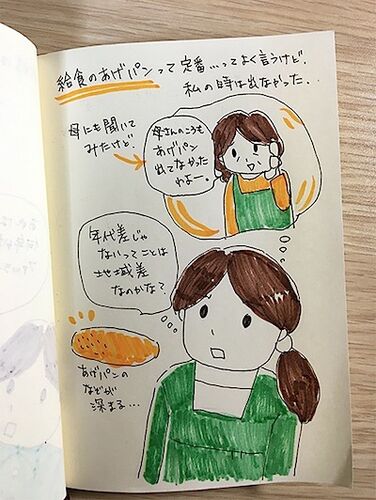 給食のあげパンって定番…ってよく言うけど、
私の時は出なかった、、
母にも聞いて
みたけど、
母さんのころも
あげパン
出てなかった
わよー。
年代差じゃ
ないってことは
地域差
なのかな?
あげパンの
なぞが
深まる…